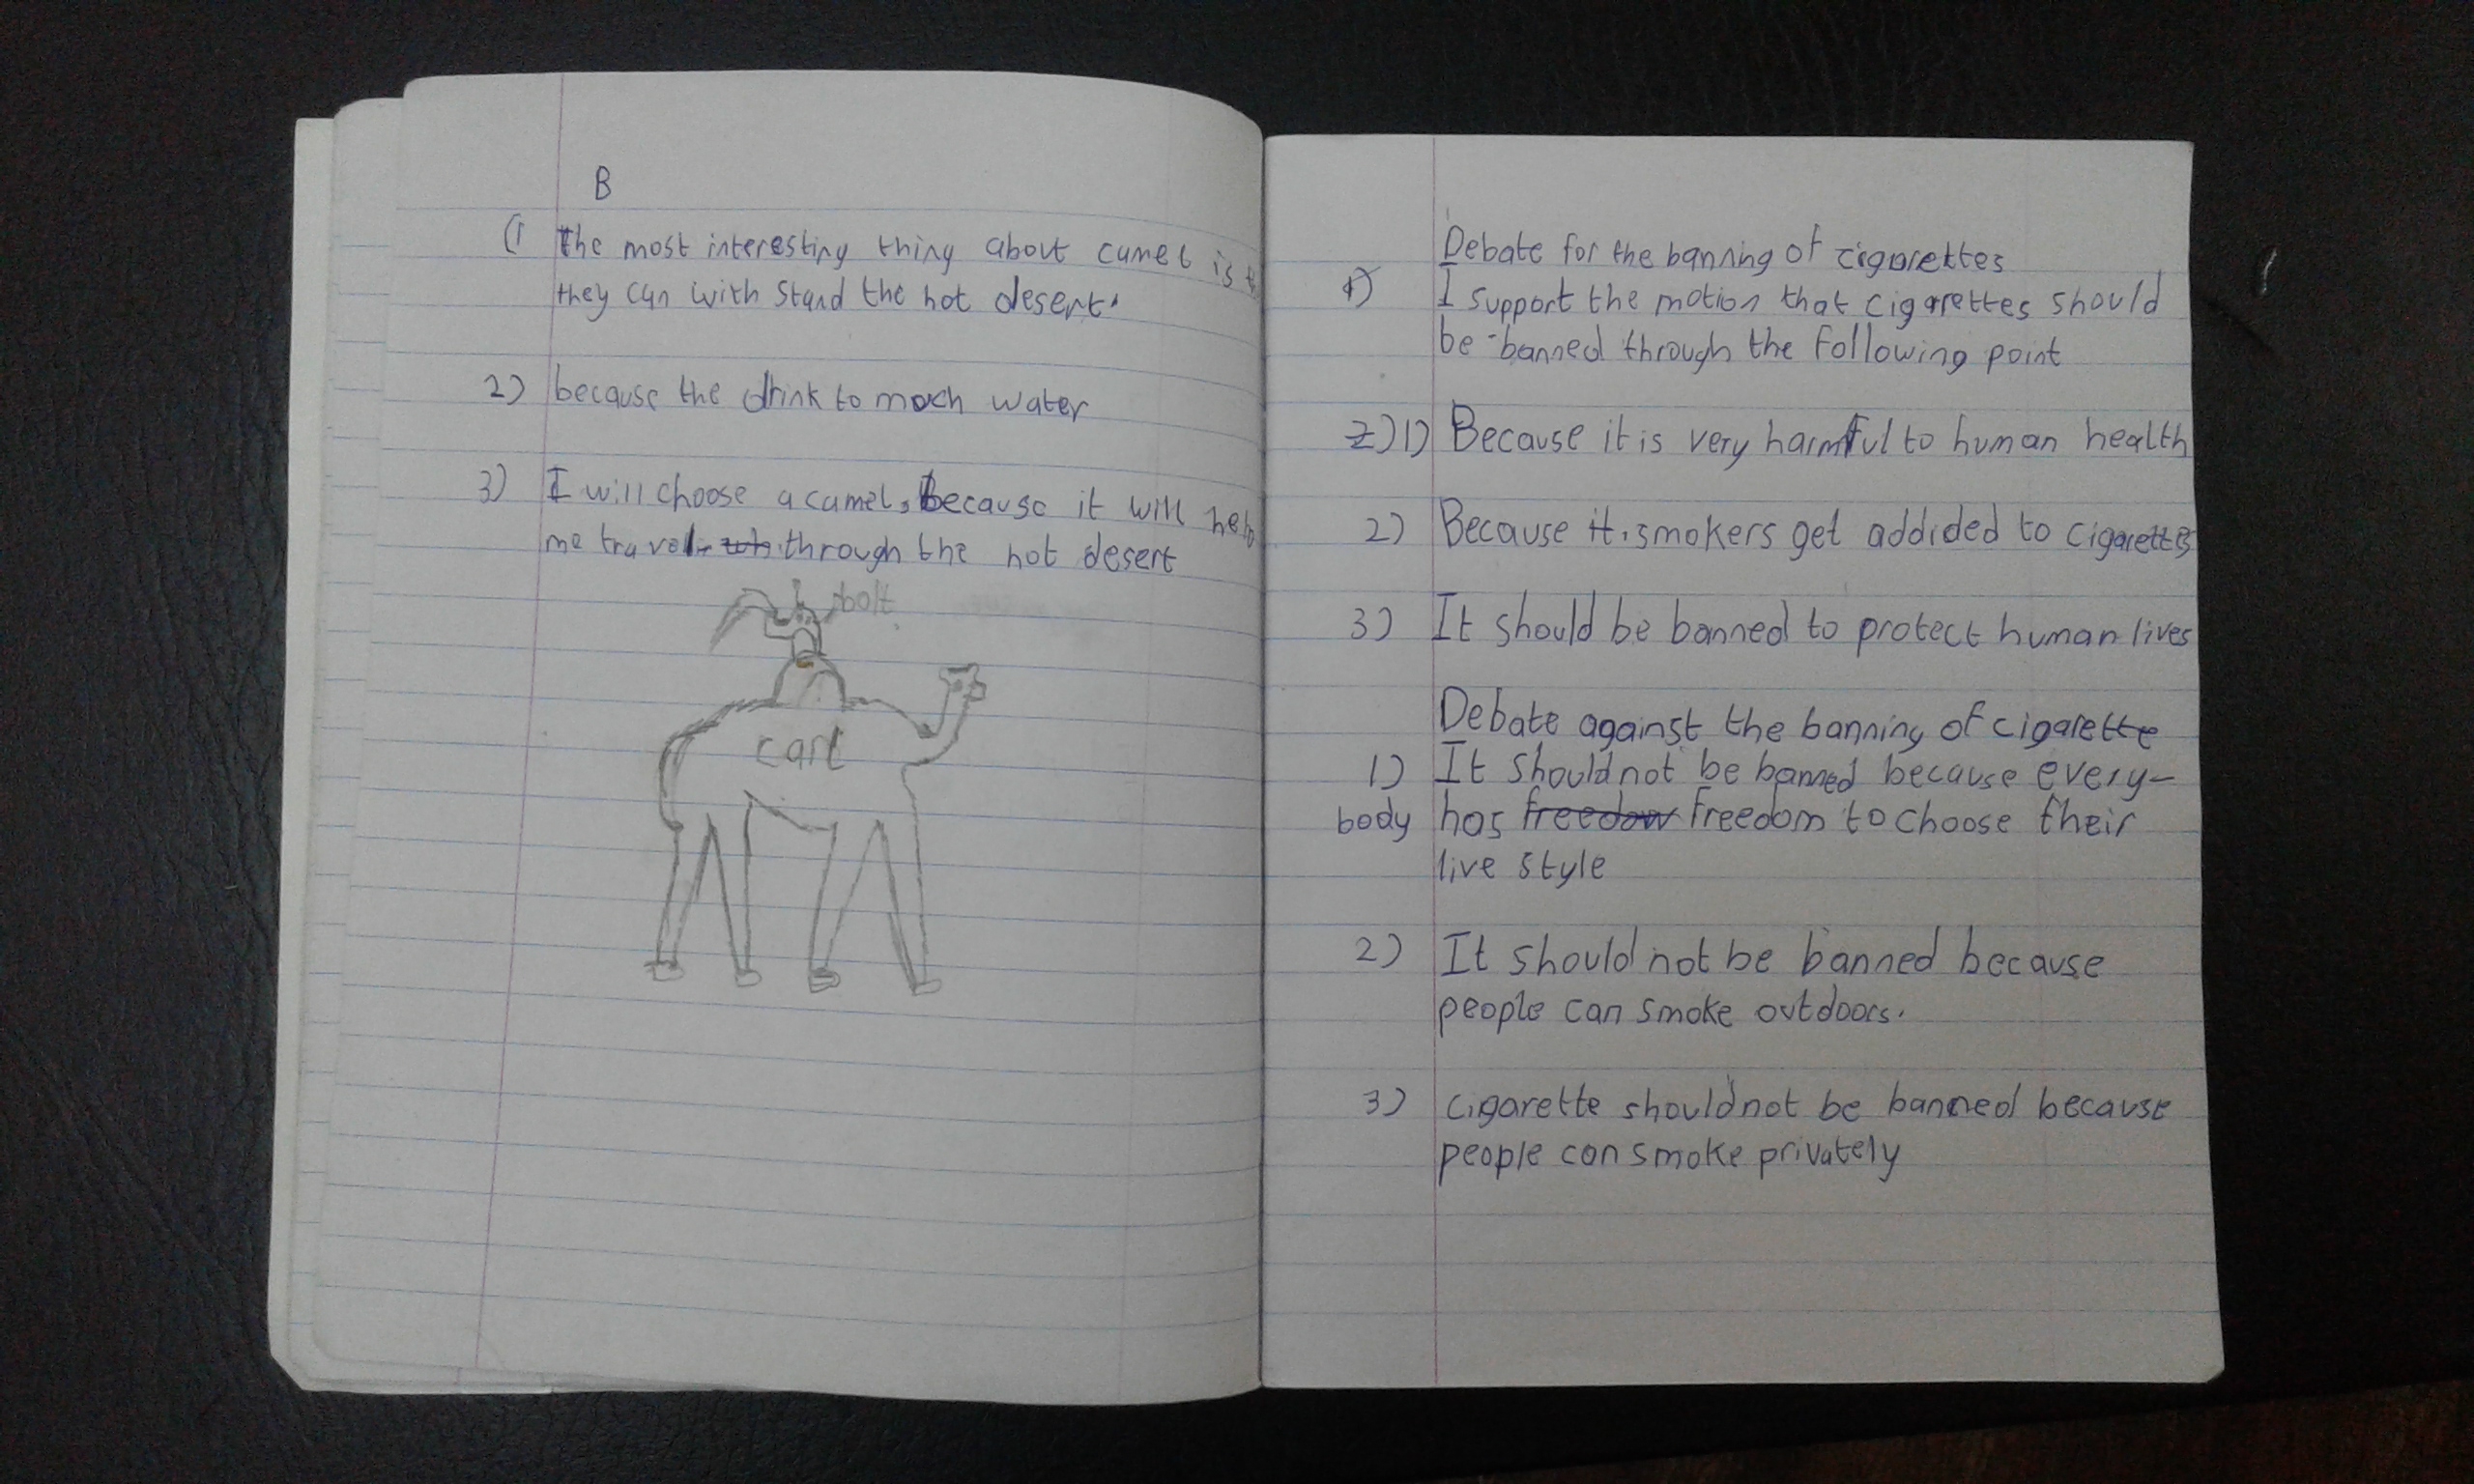 B
(1 The most interesting thing about camel is
they can with stand the hot desert.
2) because the drink to much water
3) I will choose a camel, because it will
me travel through the hot desert
bolt
Debate for the banning of cigarettes
1) I support the motion that cigarettes should
be banned through the following point
2) 1) Because it is very harmful to human health
2) Because it, smokers get addided to cigarettes
3) It should be banned to protect human lives
Debate against the banning of cigarette
1) It should not be banned because every-
body has freedow freedom to choose their
live style
2) It should not be banned because
people can smoke outdoors.
3) cigarette should not be banned because
people can smoke privately